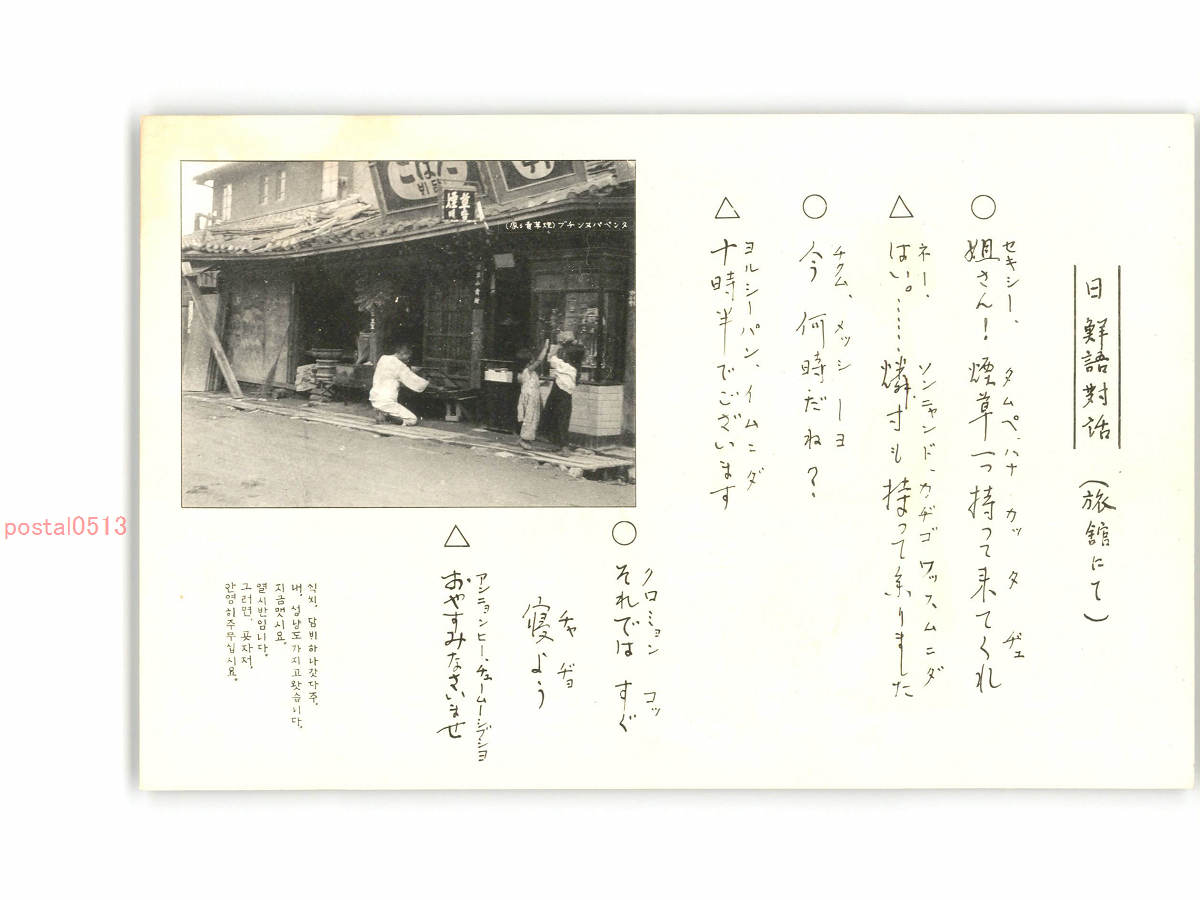 日鮮語對話 (旅舘にて)
○ セキシー、タムペ、ハナ カッタ ヂェ
姐さん! 煙草一つ持って来てくれ
△ ネー、ソンニャンド、カヂゴ ワッスムニダ
はい。……燐寸も持って参りました
○ チクム、メッシーヨ
今 何時だね?
△ ヨルシーパン、イムニダ
十時半でございます
○ クロミョン コッ
それでは すぐ
チャ ヂョ
寝よう
△ アンニョンヒー、チュームーシプショ
おやすみなさいませ
담비하나갓다주.
내. 성냥도가지고왓습니다.
지금멧시요.
열시반임니다.
그러면. 곳자저.
안영히주무십시요.
たばこ
담비
(煙草賣る家)
postal0513